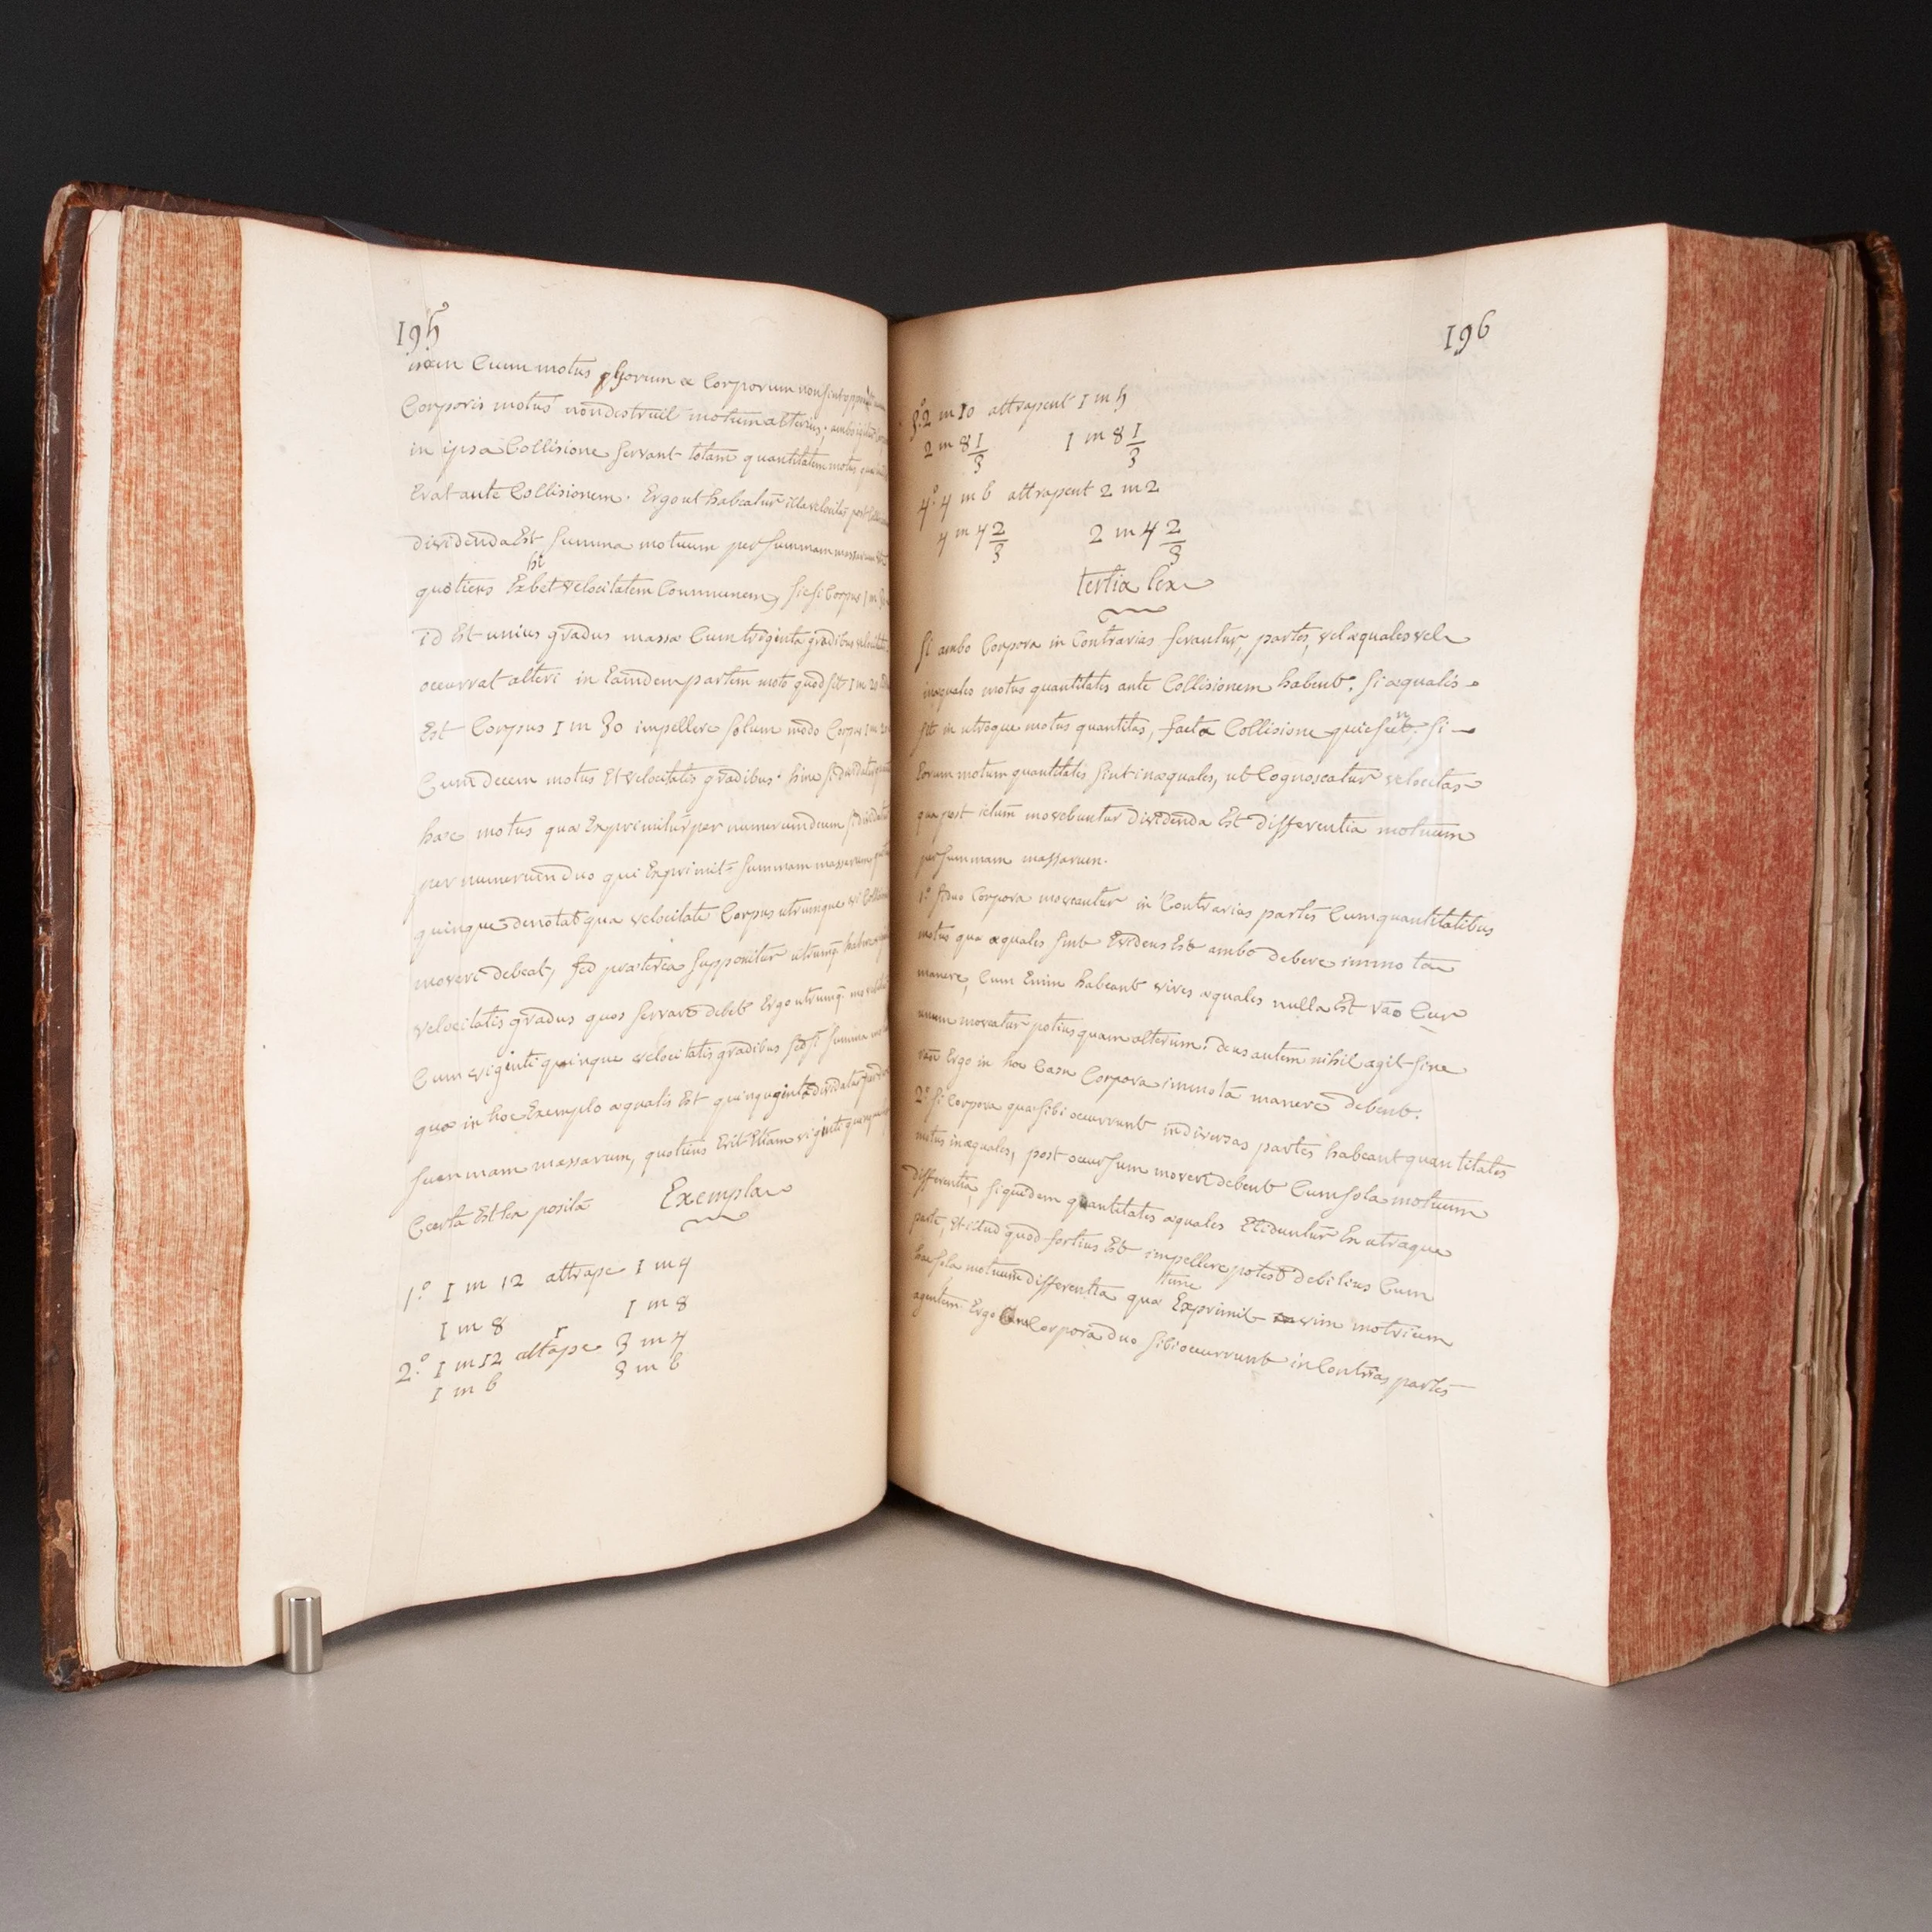 195
Cum motus horum Corporum non sint
Corporis motus non destruit motum alterius, ambo
in ipsa Collisione servant totam quantitatem motus quæ
Erat ante Collisionem. Ergo ut habeatur illa velocitas post
dividenda Est summa motuum per summam massarum
hi
quotiens Exbet velocitatem Communem, sic si Corpus 1 m 30
id Est unius gradus massæ Cum triginta gradibus velocitatis
occurrat alteri in Eamdem partem moto quod sit 1 m 20
Est Corpus 1 m 30 impellere solum modo Corpus 1 m 20
Cum decem motus Et velocitatis gradibus. hinc si dividatur
hæc motus quæ Exprimitur per numerum decem si dividatur
per numerum duo qui Exprimit summam massarum
quinque denotat qua velocitate Corpus utrumque vi Collisionis
moveri debeat, sed præterea supponitur utrumq. habere
velocitatis gradus quos servare debet Ergo utrumq. moveri
Cum viginti quinque velocitatis gradibus sed si summa
quæ in hoc Exemplo æqualis Est quinquaginta dividatur per
summam massarum, quotiens Erit Etiam viginti quinque
Certa Est lex posita Exempla
1.° 1 m 12 attrape 1 m 4
1 m 8 1 m 8
r
2.° 1 m 12 attape 3 m 4
1 m 6 3 m 6
196
3.° 2 m 10 attrapent 1 m 5
2 m 8 1/3 1 m 8 1/3
4.° 4 m 6 attrapent 2 m 2
4 m 4 2/3 2 m 4 2/3
tertia lex
Si ambo Corpora in Contrarias ferantur, partes, vel æquales vel
inæquales motus quantitates ante Collisionem habent. si æqualis
sit in utroque motus quantitas, facta Collisione quiescent, si
Eorum motum quantitates sint inæquales, ut Cognoscatur velocitas
qua post ictum movebuntur dividenda Est differentia motuum
per summam massarum.
1.° si duo Corpora moveantur in Contrarias partes Cum quantitatibus
motus quæ æquales sint Evidens Est ambo debere immota
manere, Cum Enim habeant vires æquales nulla Est rão Cur
unum moveatur potius quam alterum. deus autem nihil agit sine
rãn Ergo in hoc Casu Corpora immota manere debent.
2.° si Corpora quæ sibi occurrunt in diversas partes habeant quantitates
motus inæquales, post occursum moveri debent Cum sola motuum
differentia, siquidem quantitates æquales Eliduntur Ex utraque
parte, Et illud quod fortius Est impellere potest debilius Cum
hac sola motuum differentia quæ tunc Exprimit vim motricem
agentem. Ergo Corpora duo sibi occurrunt in Contrias partes